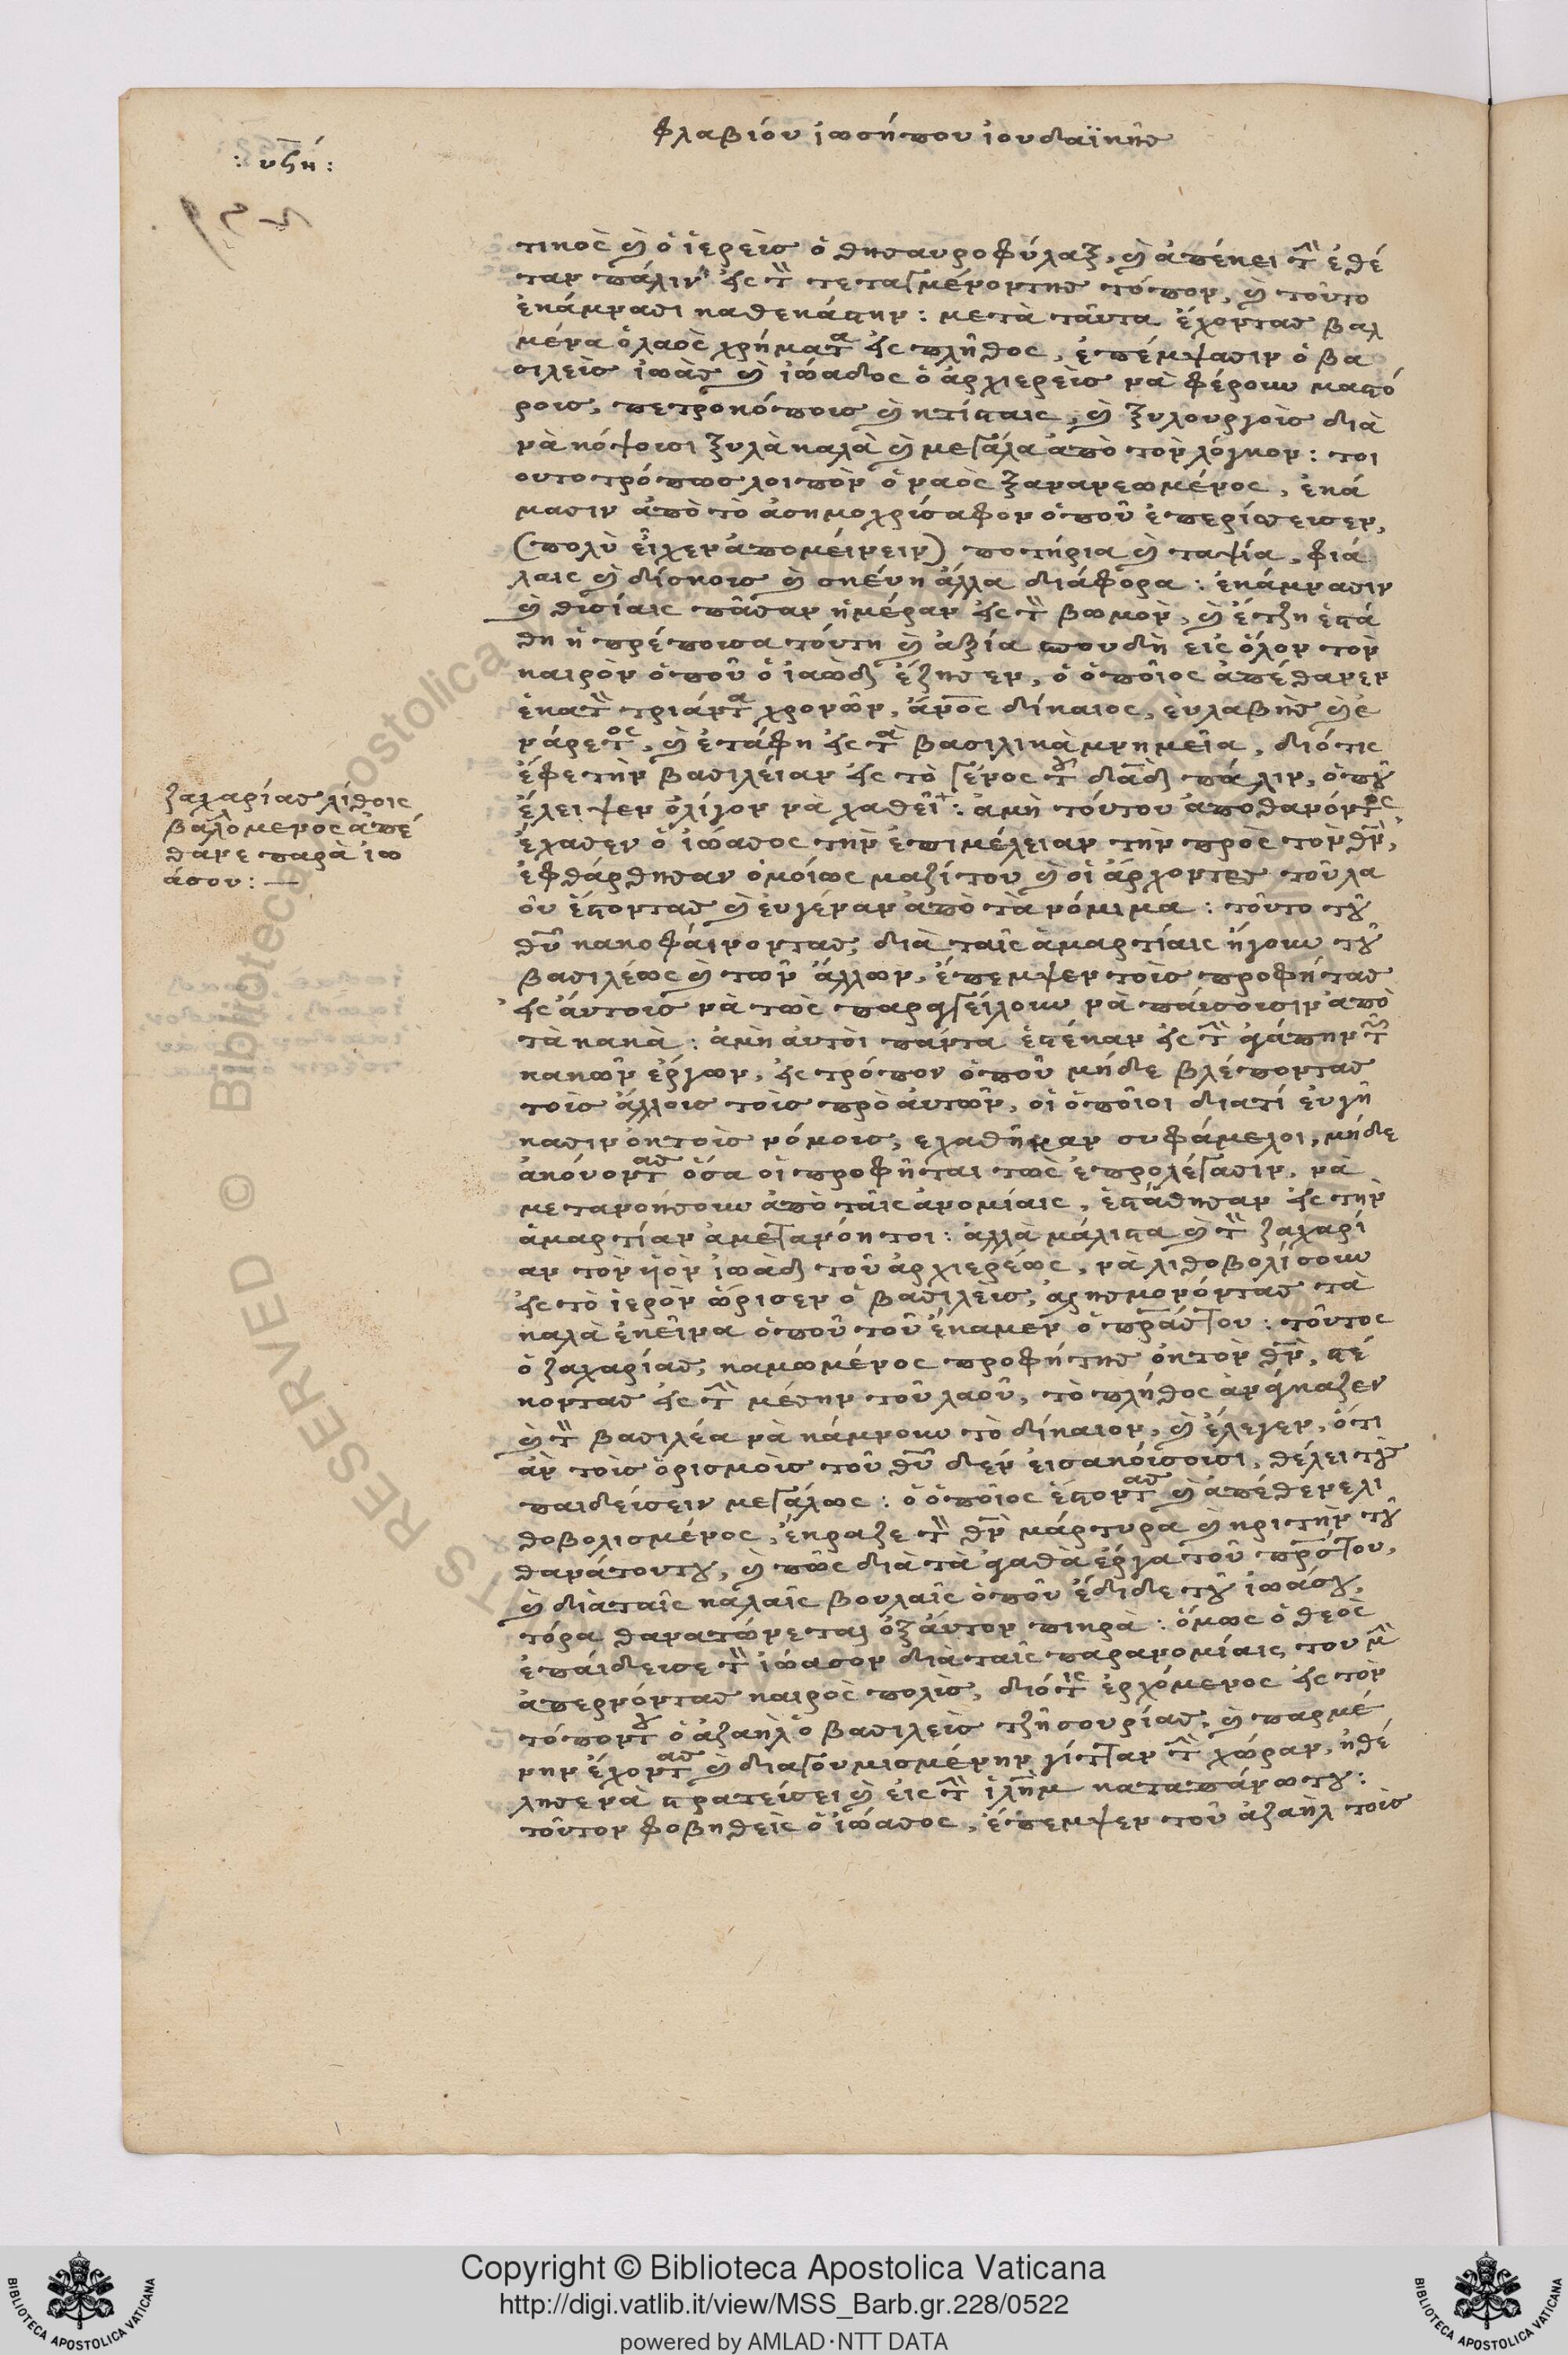 φλαβιόυ ἰωσήπου ἰουδαϊκῆς
: υϛή :
τικὸς κ(αὶ) ὁ ἱερεὶς ὁ θησαυροφύλαξ, κ(αὶ) ἀπέκει τὸ ἐθέ
ταν πάλιν εἰς τὸ τεταγμένοντης τόπον, κ(αὶ) τοῦτο
ἐκάμνασι καθεκάστην : μετὰ ταῦτα ἔχοντας βαλ
μένα ὁλαὸς χρήματα εἰς πλῆθος, ἐπέμψασιν ὁ βα
σιλεὶς ἰωὰς κ(αὶ) ἰώαδος ὁ ἀρχιερεὶς νὰ φέρουν μαστό
ροις, πετροκόποις κ(αὶ) κτίσταις, κ(αὶ) ξυλουργοὶς διὰ
νὰ κόψοισι ξυλὰ καλὰ κ(αὶ) μεγάλα ἀπὸ τὸν λόγκον : τοι
ουτοτρόπως λοιπὸν ὁ ναὸς ξανανεωμένος, ἐκά
μασιν ἀπὸ τὸ ἀσημοχρίσαφον ὁποῦ ἐπερίσσεισεν,
(πολὺ εἶχεν ἀπομείνειν) ποτήρια κ(αὶ) ταψία, φιά
λαις κ(αὶ) δίσκοις κ(αὶ) σκέυη ἄλλα διάφορα : ἐκάμνασιν
κ(αὶ) θισίαις πᾶσαν ἡμέραν εἰς τὸ βωμὸν, κ(αὶ) ἔτζη ἐστά
θη ἡ πρέποισα τόυτη κ(αὶ) ἀξία σπουδὴ εἰς ὅλον τὸν
καιρὸν ὁποῦ ὁ ἰαὼδ ἔζησεν, ὁ ὁποῖος ἀπέθανεν
ἑκατὸ τριάντα χρονῶν, ἄνος δίκαιος, ἐυλαβὴς κ(αὶ) ἐ
νάρετος, κ(αὶ) ἐτάφη εἰς τὰ βασιλικὰ μνημεῖα, διότις
ἔφετὴν βασιλείαν εἰς τὸ γένος τοῦ δαδ πάλιν, ὁποῦ
ἔλειψεν ὀλίγον νὰ χαθεῖ : ἀμὴ τόυτου ἀποθανόντος,
ἔχασεν ὁ ἰώασος τὴν ἐπιμέλειαν τὴν πρὸς τὸν θν,
ἐφθάρθησαν ὁμοίως μαζίτου κ(αὶ) οἱ ἄρχοντες τοῦλα
οῦ ἔστοντας κ(αὶ) ἐυγέναν ἀπὸ τὰ νόμιμα : τοῦτο τοῦ
θῦ κακοφάινοντας, διὰ ταῖς ἁμαρτίαις ἤγουν τοῦ
βασιλέως κ(αὶ) τῶν ἄλλων, ἔπεμψεν τοὶς προφήτας
εἰς ἀυτοὶς νὰ τοὺς παραγγείλουν νὰ πάισοισιν ἀπὸ
τὰ κακὰ : ἀμὴ ἀυτοὶ πάντα ἐστέκαν εἰς τὴ ἀγάπην τῶν
κακῶν ἔργων, εἰς τρόπον ὁποῦ μήδε βλέποντας
τοὶς ἄλλοις τοὶς πρὸ ἀυτῶν, οἱ ὁποῖοι διατί ἐυγῆ
κασιν ὀκτοὶς νόμοις, εχαθῆκαν συφάμελοι, μήδε
ἀκόυοντας ὅσα οἱ προφῆται τοὺς ἐπρολέγασιν, νὰ
μετανοήσουν ἀπὸ ταῖς ἀνομίαις, ἐστάθησαν εἰς τὴν
ἁμαρτίαν ἀμετανόητοι : ἀλλὰ μάλιστα κ(αὶ) τὸ ζαχαρί
αν τὸν ἡὸν ἰωὰδ τοῦ ἀρχιερέως, νὰ λιθοβολίσουν
εἰς τὸ ἱερὸν ὥρισεν ὁ βασιλεὶς, ἀλησμονόντας τὰ
καλὰ ἐκεῖνα ὁποῦ τοῦ ἔκαμεν ὁ πράστου : τοῦτος
ὁ ζαχαρίας, καμωμένος προφήτης ὀκτὸν θν, στέ
κοντας εἰς τὴ μέσην τοῦ λαοῦ, τὸ πλήθος ἀνάγκαζεν
κ(αὶ) τὸ βασιλέα νὰ κάμνουν τὸ δίκαιον, κ(αὶ) ἔλεγεν, ὅτι
ἂν τοὶς ὁρισμοὶς τοῦ θῦ δὲν εισακόυσοισι, θέλει τοὺς
παιδέισειν μεγάλως : ὁ ὁποῖος ἔστοντας κ(αὶ) ἀπέθενελι
θοβολισμένος, ἔκραζε τὸ θν μάρτυρα κ(αὶ) κριτὴν τοῦ
θανάτουτου, κ(αὶ) πῶς διὰ τὰ ἀγαθὰ ἔργα τοῦ πρστου,
κ(αὶ) διὰ ταῖς καλαῖς βουλαῖς ὁποῦ ἔδιδε τοῦ ἰωάσου,
τόρα θανατώνεται ὀξάυτον πικρὰ : ὅμως ὁ θεὸς
ἐπάιδεισε τὸ ἰώασον διὰ ταῖς παρανομίαις του μὴ
ἀπερνόντας καιρὸς πολὶς, διότις ἐρχόμενος εἰς τὸν
τόποντου ὁ ἀζαὴλ ὁ βασιλεὶς τζῆσουρίας, κ(αὶ) παρμέ
νην ἔχοντας κ(αὶ) διαγουμισμένην γίτταν τὴ χώραν, ἠθέ
λησε νὰ στρατέισει κ(αὶ) εἰς τὴ ἱλῆμ καταπάνωτου :
τοῦτον φοβηθεὶς ὁ ἰώασος, ἔπεμψεν τοῦ ἀζαὴλ τοὶς
ζαχαρίας λίθοις
βαλόμενος ἀπέ
θανε παρὰ ἰω
άσου : —
Copyright © Biblioteca Apostolica Vaticana
http://digi.vatlib.it/view/MSS_Barb.gr.228/0522
powered by AMLAD·NTT DATA
BIBLIOTECA APOSTOLICA VATICANA
BIBLIOTECA APOSTOLICA VATICANA